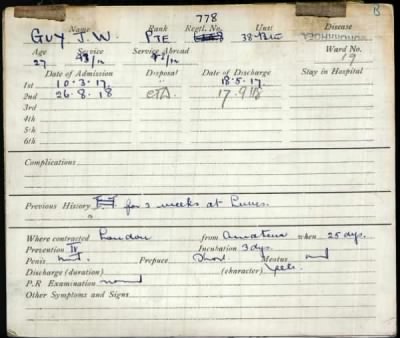 B
778
Name Rank Regtl. No. Unit Disease
GUY J. W. PTE 38-Bttn GONORRHOEA
Age Service Service Abroad Ward No.
27 /12 /12 19
Date of Admission Disposal Date of Discharge Stay in Hospital
1st 10.3.17 18.5.17.
2nd 26.8.18 17.9.18
3rd
4th
5th
6th
Complications
Previous History for 3 weeks at
Where contracted London from Amateur when 25 dys.
Prevention IV Incubation 3 dys.
Penis Prepuce Short Meatus
Discharge (duration) (character)
P.R Examination
Other Symptoms and Signs